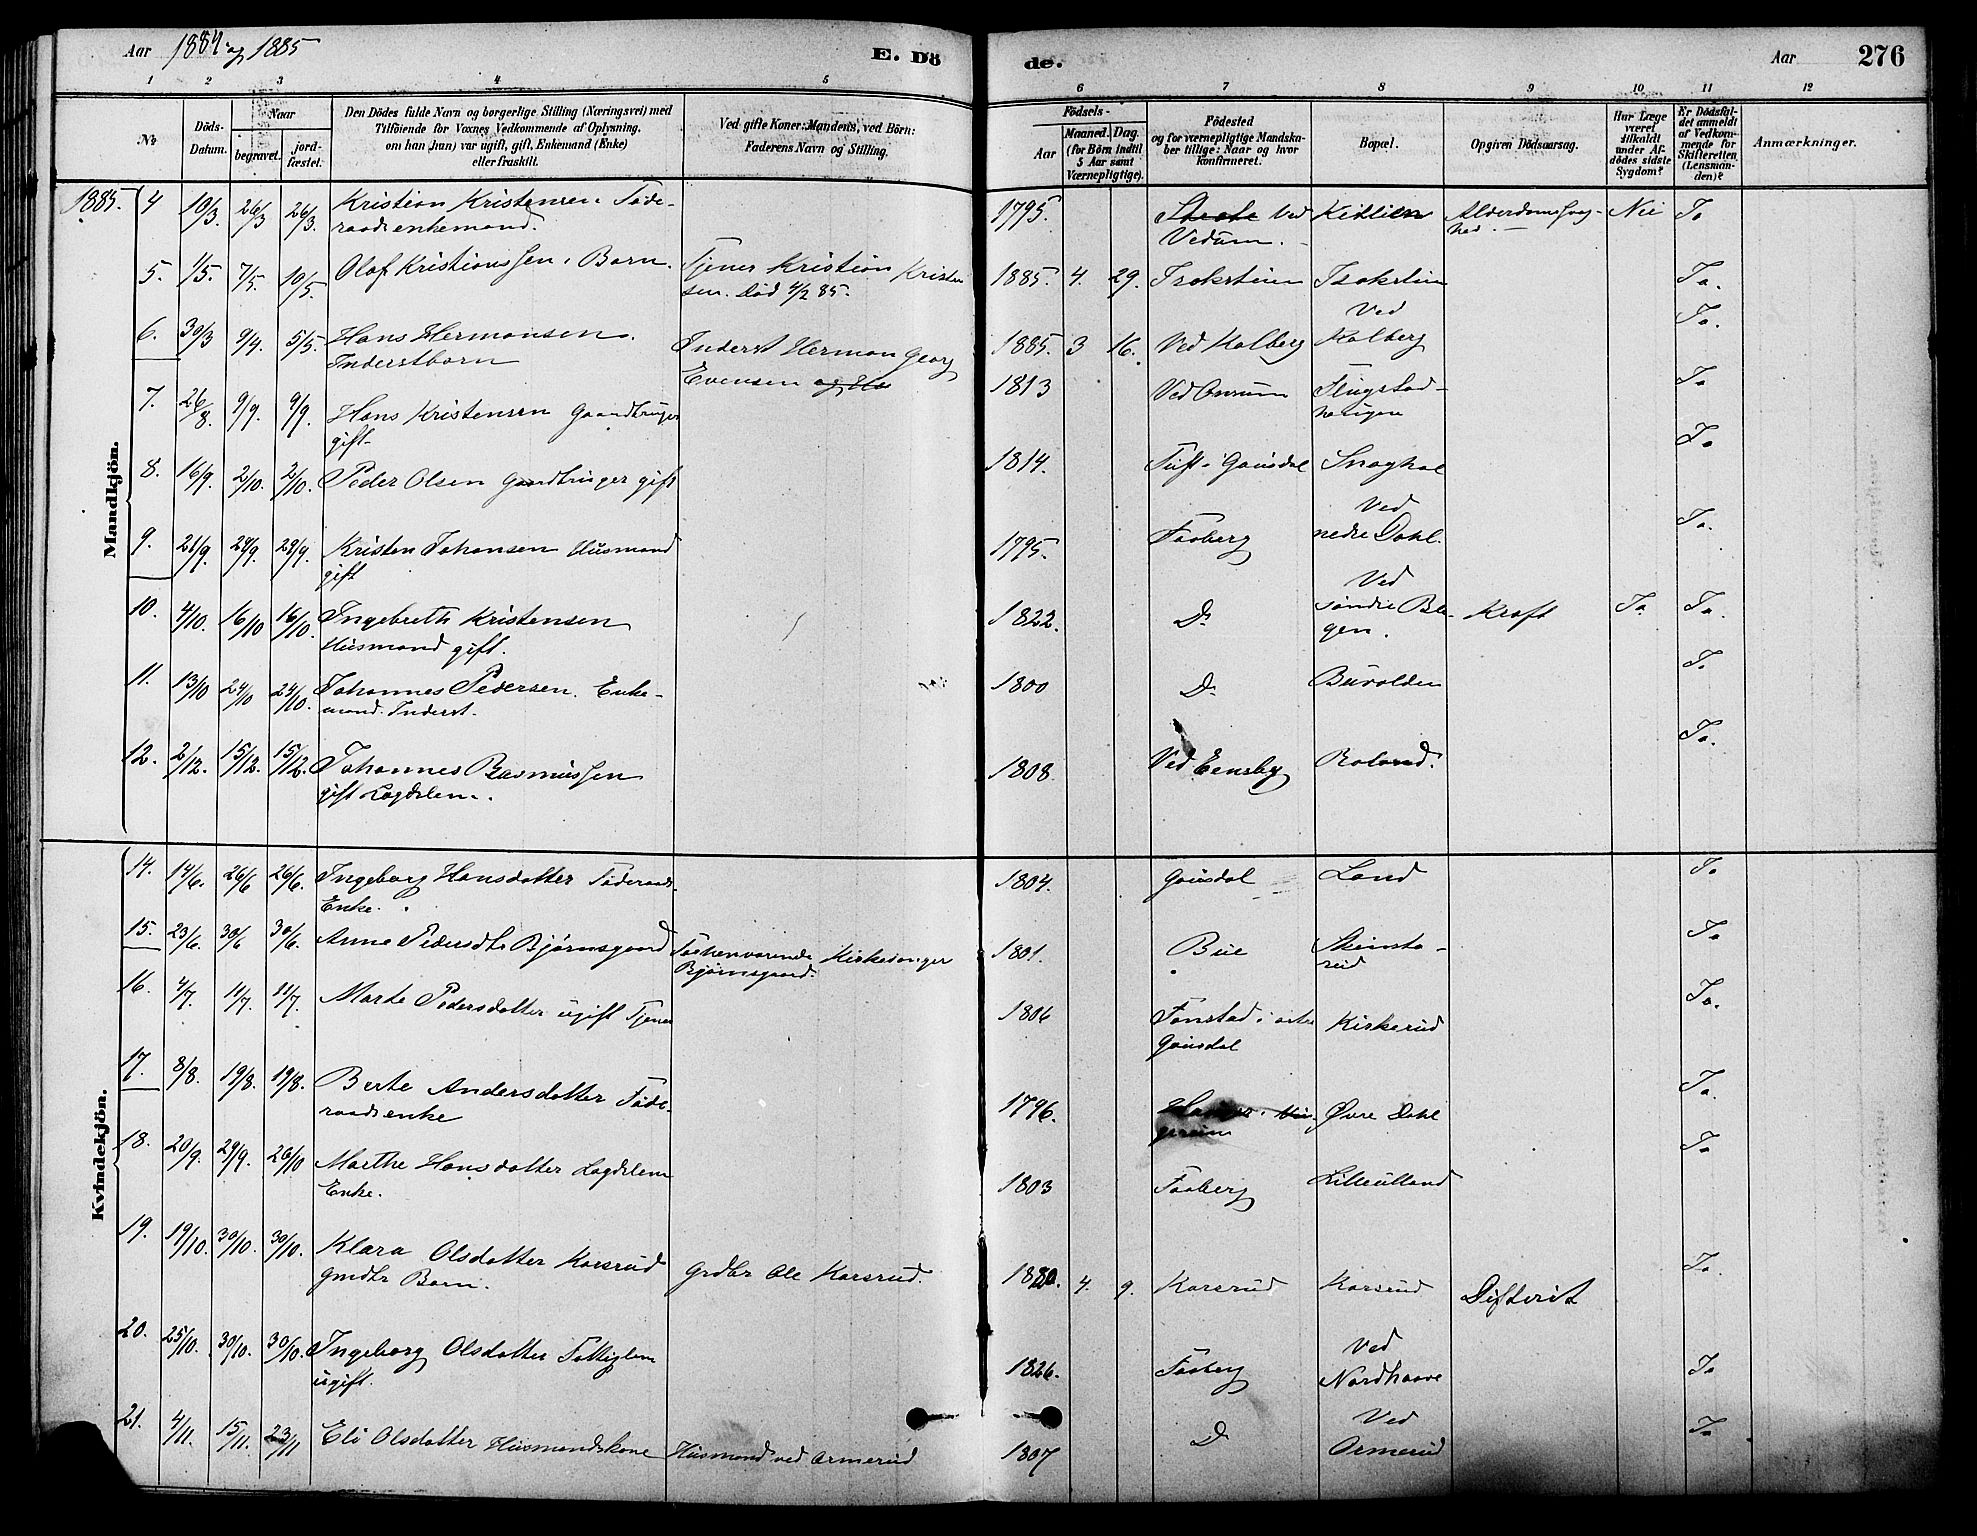 Aar 1884 og 1885
E. Dö
de.
Aar
276
1 2 3 4 5
6 7 8 9 10 11 12
No
Döds-
Datum.
Naar
begravet.
jord-
fæstet.
Den Dödes fulde Navn og borgerlige Stilling (Næringsvei) med
Tilföiende for Voxnes Vedkommende af Oplysning,
om han (hun) var ugift, gift, Enkemand (Enke)
eller fraskilt.
Ved gifte Koner: Mandens, ved Börn:
Faderens Navn og Stilling.
Födsels-
Aar
Maaned. Dag.
(for Börn indtil
5 Aar samt
Værnepligtige).
Födested
og for værnepligtige Mandska-
ber tillige: Naar og hvor
konfirmeret.
Bopæl.
Opgiven Dödsaarsag.
Har Læge
været
tilkaldt
under Af-
dödes sidste
Sygdom?
Er Dödsfal-
det anmeldt
af Vedkom-
mende for
Skifteretten
(Lensman-
den)?
Anmærkninger.
Mandkjön.
1885. 4 19/3. 26/3 26/3. Kristian Kristensen. Föde-
raadsenkemand.
1795. Ved Kittilen Alderdomssvag- Nei Ja
Vedum. hed.
5. 1/5. 7/5. 10/5. Olaf Kristianssen. Barn. Tjener Kristian Kristen
sen. Död 4/2 85.
1885. 4. 29. Isakstuen Isakstuen Ja.
6. 30/3 9/4. 5/5. Hans Hermansen.
Inderstbarn
Inderst Herman Georg
Evensen
1885. 3 16. Ved Kalberg Ved
Kalberg Ja.
7. 26/8. 9/9. 9/9. Hans Kristensen Gaardbruger
gift.
1813 Flugstad-
haugen Ja
8. 16/9. 2/10. 2/10. Peder Olsen Gaardbruger gift
1814. Tuft i Gausdal Ja
9. 21/9. 29/9. 29/9. Kristen Johansen Husmand
gift
1795. Faaberg Ved
nedre Dahl. Ja.
10. 4/10. 16/10 16/10. Ingebreth Kristensen
Husmand gift.
1822. Do Ved
söndre Ble-
gen. Kræft Ja. Ja.
11. 13/10 24/10 24/10. Johannes Pedersen. Enke-
mand. Inderst.
1800 Do Buvolden Ja.
12. 2/12. 15/12. 15/12. Johannes Rasmussen
gift Lagdslem.
1808. Ved Eensby Roland. Ja.
Kvindekjön.
14. 14/6. 26/6 26/6. Ingeborg Hansdatter Föderaads-
Enke.
1804. Gausdal Land Ja
15. 23/6. 30/6 30/6. Anne Pedersdtr Bjørnsgaard Forhenværende Kirkesanger
Bjørnsgaard.
1801. Bue Ja
16. 4/7. 11/7. 11/7. Marte Pedersdatter ugift Tjener
1806 Fonstad i östre
Gausdal Kirkerud Ja.
17. 8/8. 19/8. 19/8. Berte Andersdatter Föde-
raadsenke
1796. Øvre Dahl Ja.
18. 20/9. 29/9. 26/10 Marthe Hansdatter Lagdslem
Enke.
1803 Faaberg Lilleulland Ja
19. 19/10. 30/10. 30/10. Klara Olsdatter Korsrud
Gmdbr Barn.
Grdbr Ole Korsrud.
1880. 4. 9. Korsrud Korsrud Difterit Ja.
20. 25/10. 30/10. 30/10. Ingeborg Olsdatter Fattiglem
ugift.
1826. Faaberg Ved
Nordhaave Ja
21. 4/11. 15/11. 23/11 Eli Olsdatter Husmandskone Husmand ved Ormerud
1807 Do Ved
Ormerud Ja